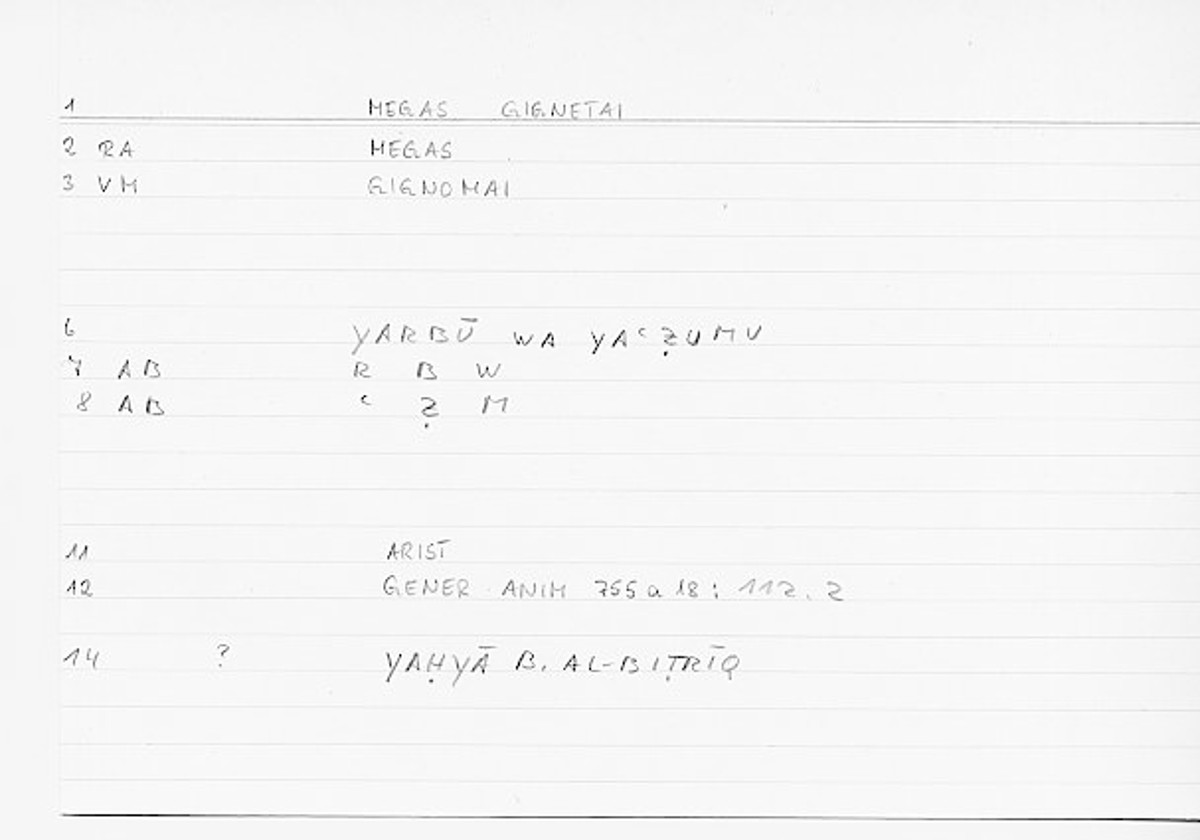 1 MEGAS GIGNETAI
2 RA MEGAS
3 VM GIGNOMAI
6 YARBŪ WA YAʿẒUMU
7 AB R B W
8 AB ʿ Ẓ M
11 ARIST
12 GENER ANIM 755a18: 112.2
14 ? YAḤYĀ B. AL-BIṬRĪQ